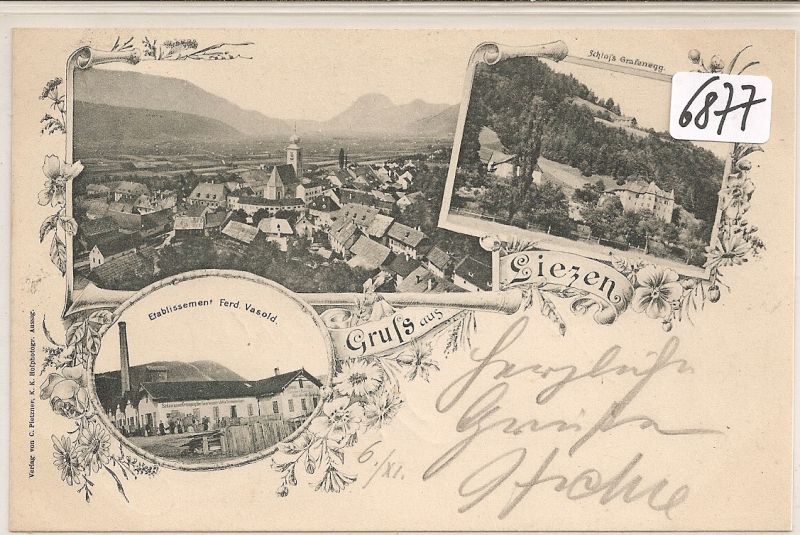 Schloß Grafenegg.
6877
Liezen
Etablissement Ferd. Vasold.
Gruß aus
Herzliche
Grüße
6./XI.
Verlag von C. Pietzner, K. K. Hofphotogr. Aussig.